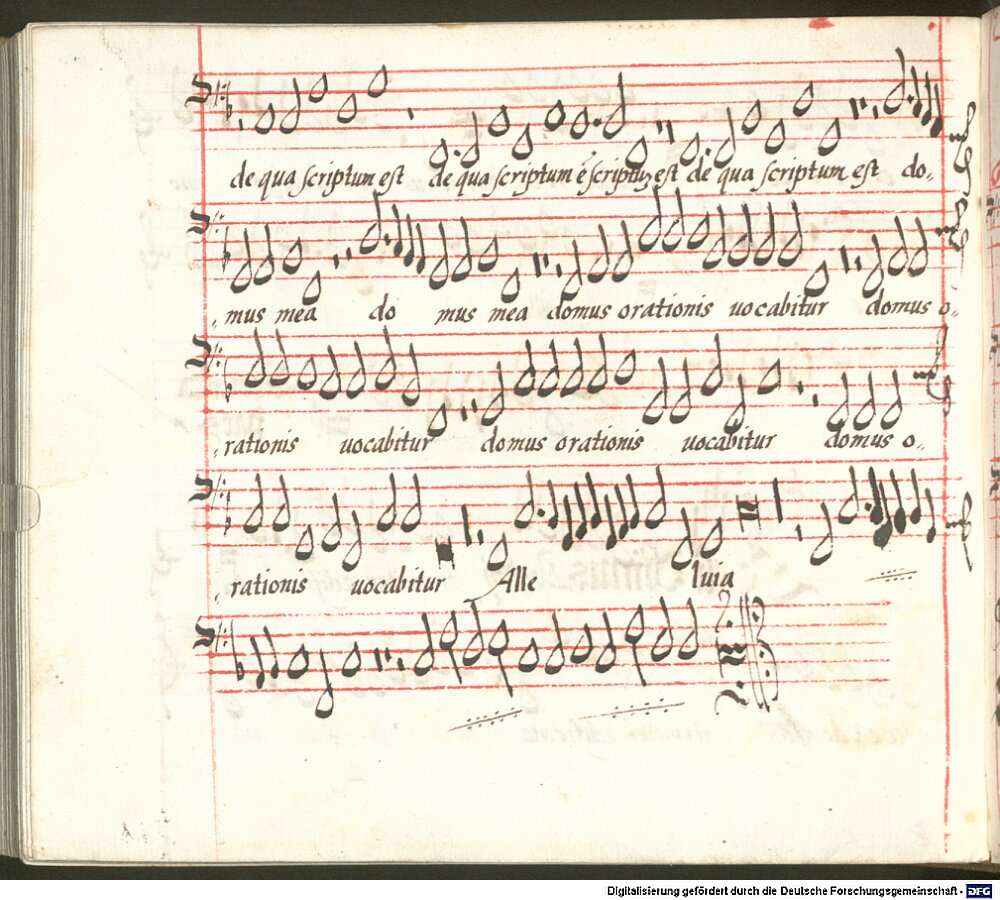 de qua scriptum est de qua scriptum é scriptuz est de qua scriptum est do..
mus mea do mus mea domus orationis uocabitur domus o..
rationis uocabitur domus orationis uocabitur domus o..
rationis uocabitur Alle luia
Digitalisierung gefördert durch die Deutsche Forschungsgemeinschaft - DFG